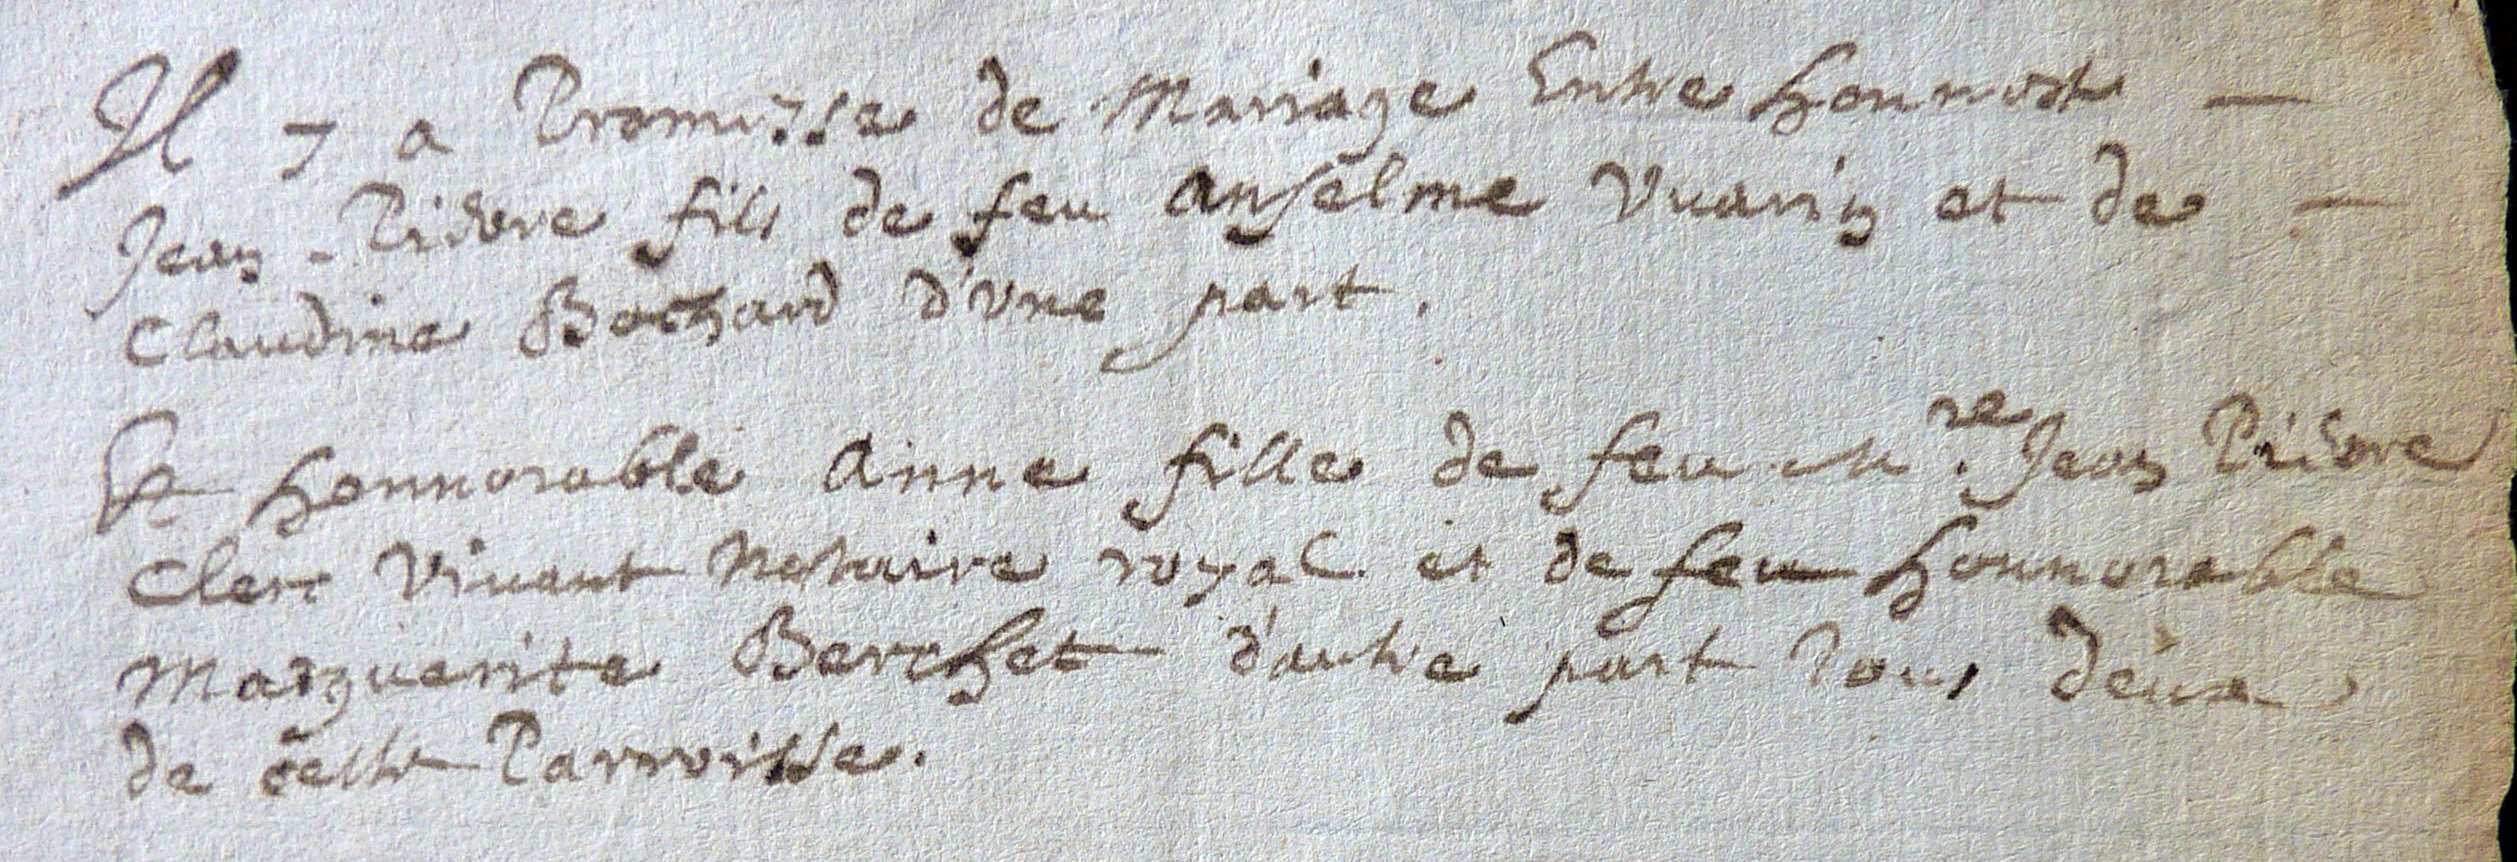 Il y a Promesse de Mariage Entre honnest —
Jean - Pierre fils de feu Anselme Vuarin et de —
Claudine Bochard d'vne part.
Et honnorable Anne fille de feu M.re Jean Pierre
Clerc Vivant Notaire royal et de feu honnorable
Marguerite Berchet d'autre part tous deux
de cette Parroisse.